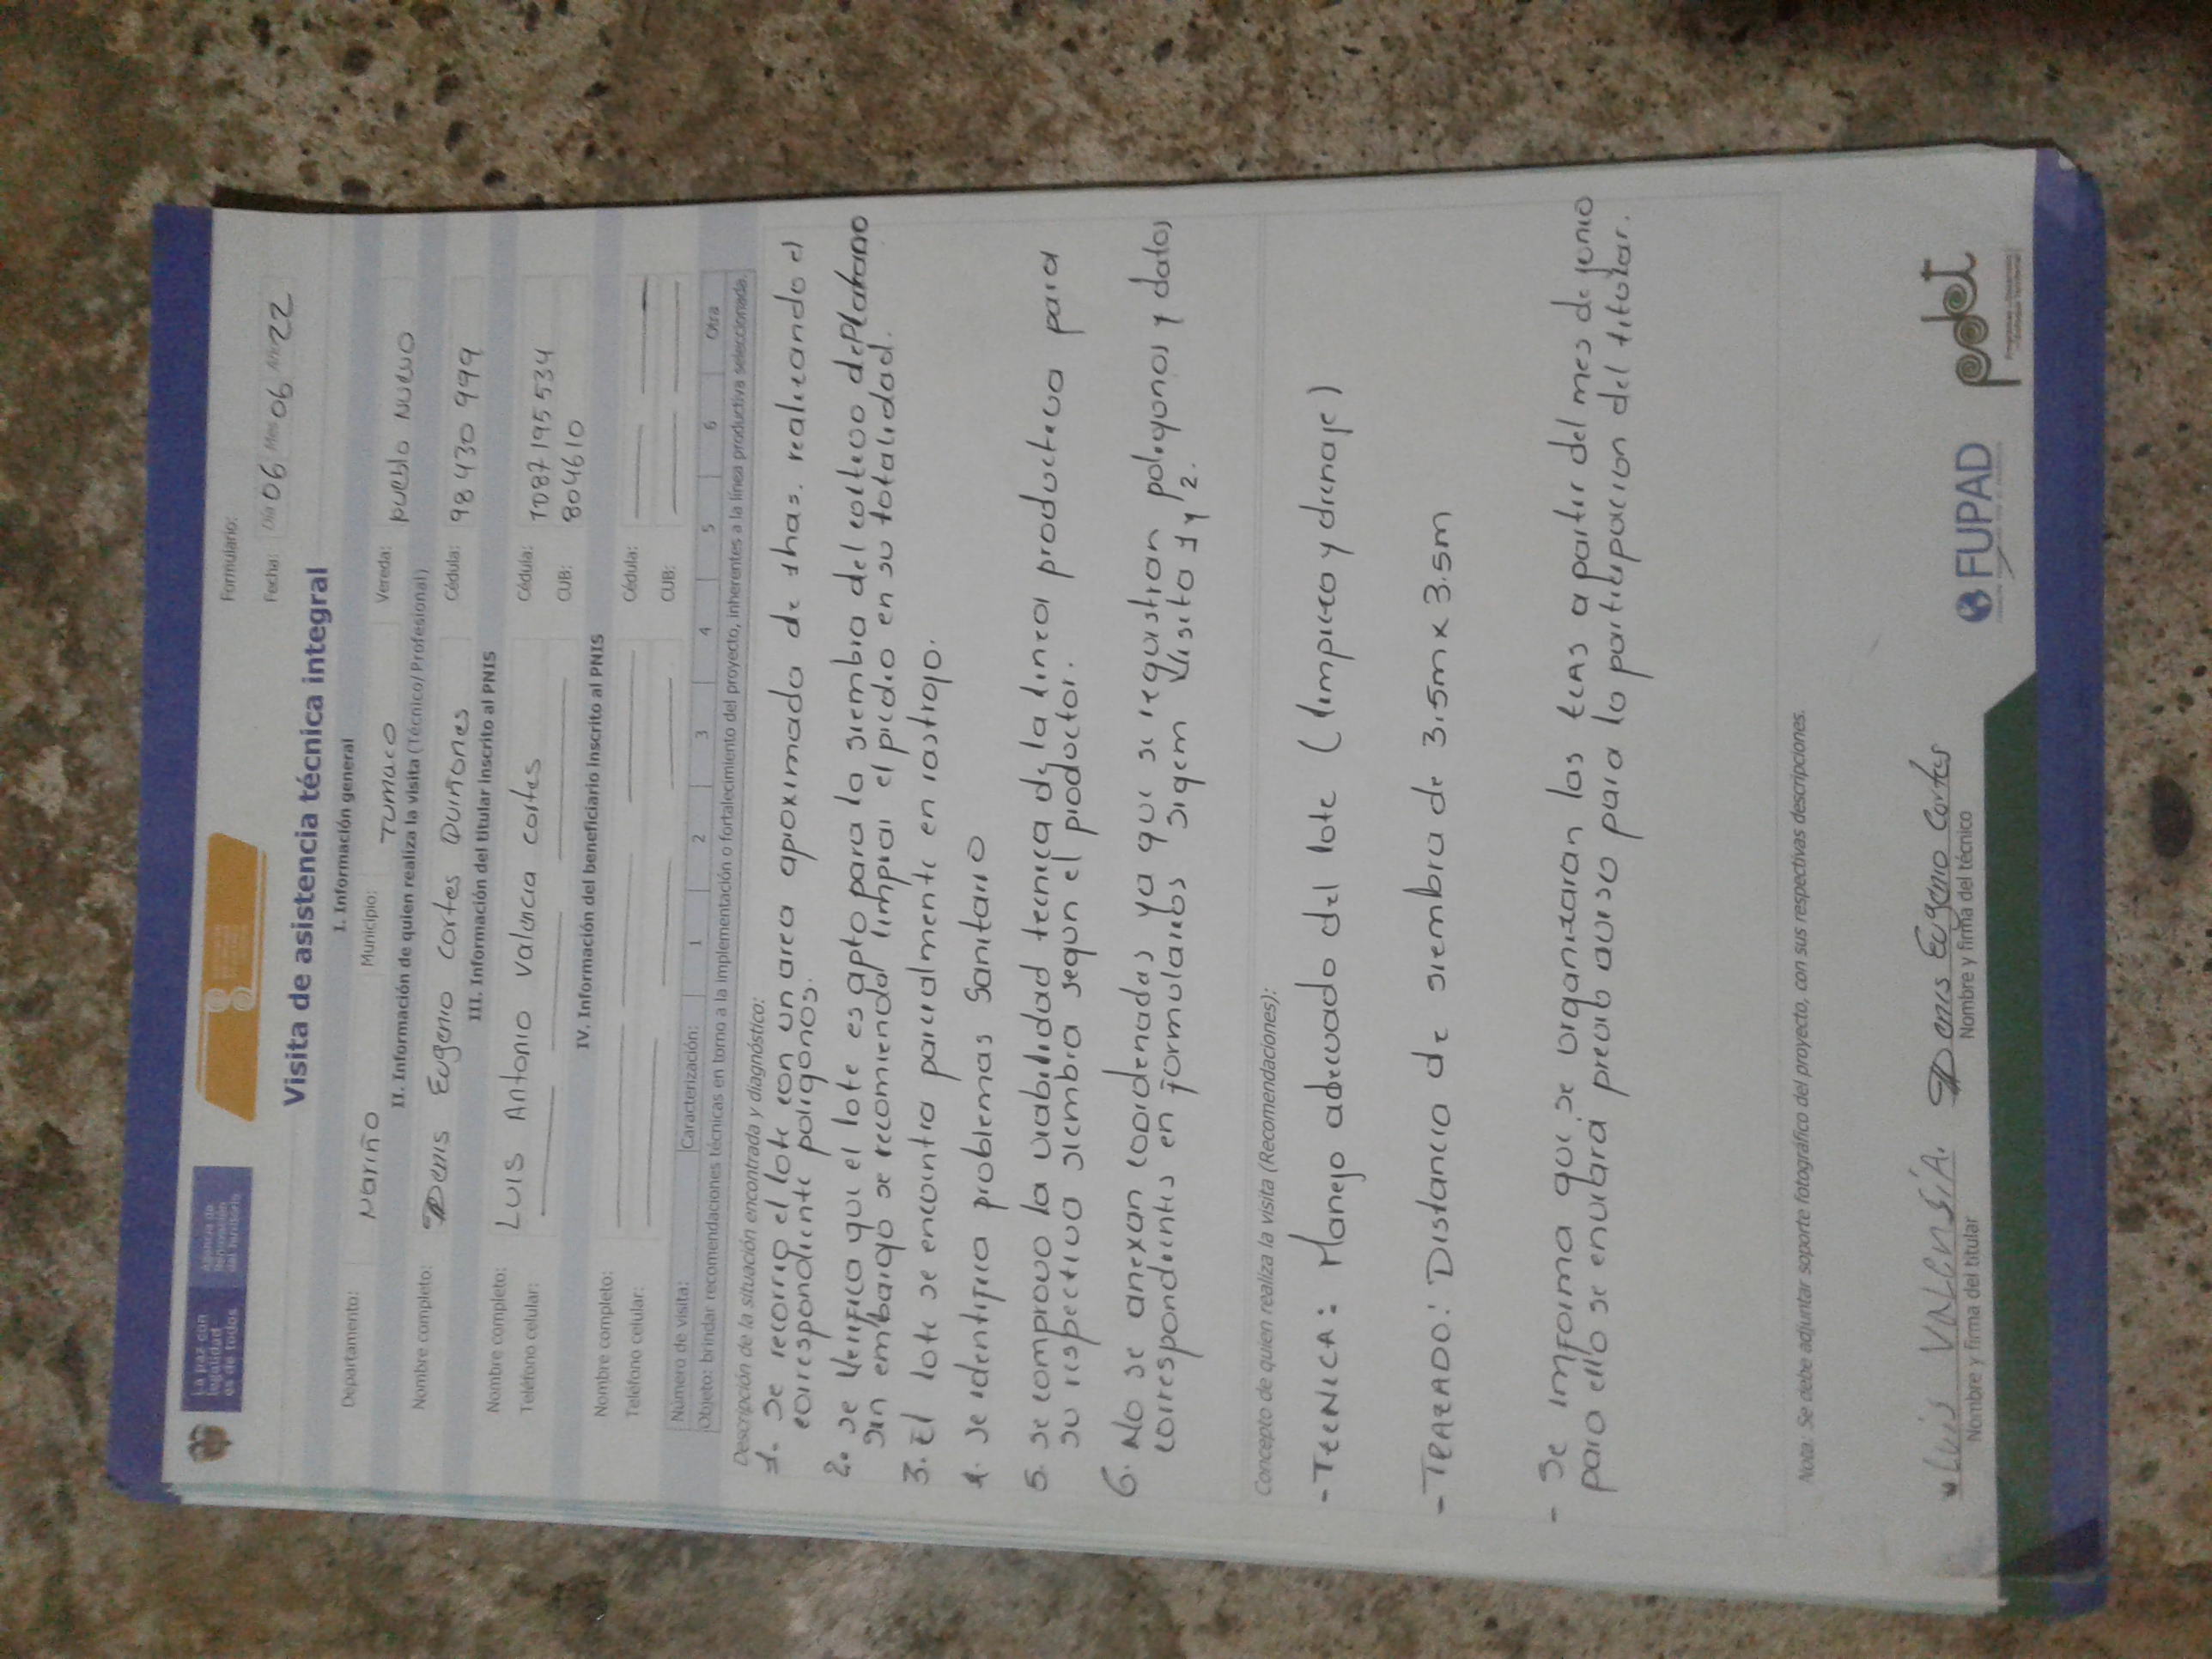 La paz con
legalidad
es de todos
Agencia de
Renovación
del Territorio
Formulario:
Fecha: Día 06 Mes 06 Año 22
Visita de asistencia técnica integral
I. Información general
Departamento: Nariño Municipio: Tumaco Vereda: Pueblo Nuevo
II. Información de quien realiza la visita (Técnico/Profesional)
Nombre completo: Denis Eugenio Cortes Quiñones Cédula: 98 430 999
III. Información del titular inscrito al PNIS
Nombre completo: Luis Antonio Valencia Cortes Cédula: 1087 195 534
Teléfono celular: CUB: 804610
IV. Información del beneficiario inscrito al PNIS
Nombre completo: Cédula:
Teléfono celular: CUB:
Número de visita: Caracterización: 1 2 3 4 5 6 Otra
Objeto: brindar recomendaciones técnicas en torno a la implementación o fortalecimiento del proyecto, inherentes a la línea productiva seleccionada.
Descripción de la situación encontrada y diagnóstico:
1. Se recorrio el lote con un area aproximada de 1 has. realizando el
correspondiente poligonos.
2. se Verifica que el lote es apto para la siembra del cultivo de Platano
Sin embargo se recomienda limpiar el predio en su totalidad.
3. El lote se encuentra parcialmente en rastrojo.
4. se identifica problemas Sanitario
5. se comprovo la viabilidad tecnica de la linea productiva para
su respectiva siembra segun el productor.
6. No se anexan coordenadas ya que se registran poligonos y datos
correspondientes en formularios sigem Visita 1 y 2.
Concepto de quien realiza la visita (Recomendaciones):
- TECNICA: Manejo adecuado del lote (limpieza y drenaje)
- TRAZADO: Distancia de siembra de 3.5m x 3.5m
- Se informa que se organizaran las ECAS a partir del mes de junio
para ello se enviará previo aviso para la participacion del titular.
Nota: Se debe adjuntar soporte fotográfico del proyecto, con sus respectivas descripciones.
Luis VALENSÍA.
Nombre y firma del titular
Denis Eugenio Cortes
Nombre y firma del técnico
FUPAD
pdet